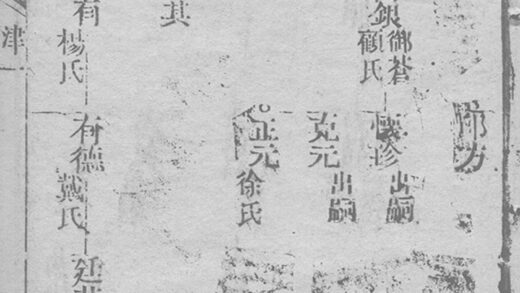 銀御蒼
顧氏
懷珍出嗣
克元出嗣
正元徐氏
其
有楊氏
有德戴氏
廷
津